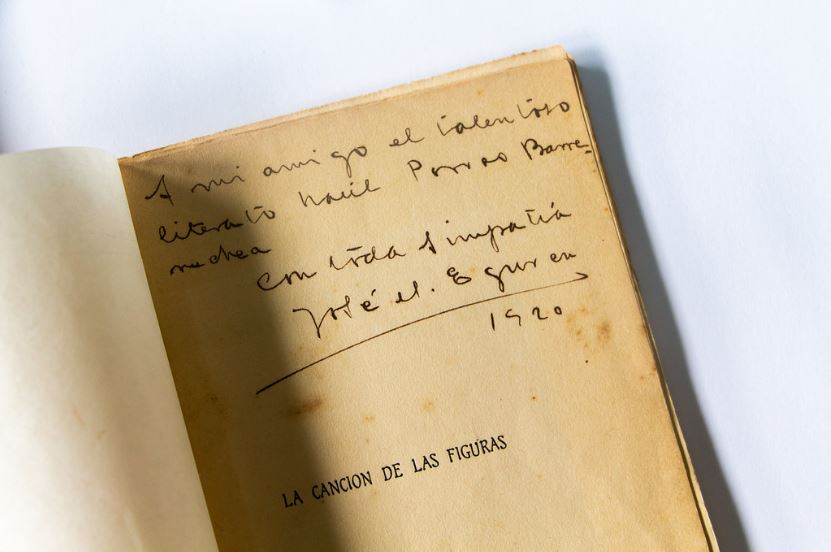 A mi amigo el talentoso
literato Raúl Porras Barre-
nechea
Con toda simpatía
José M. Eguren
1920
LA CANCION DE LAS FIGURAS